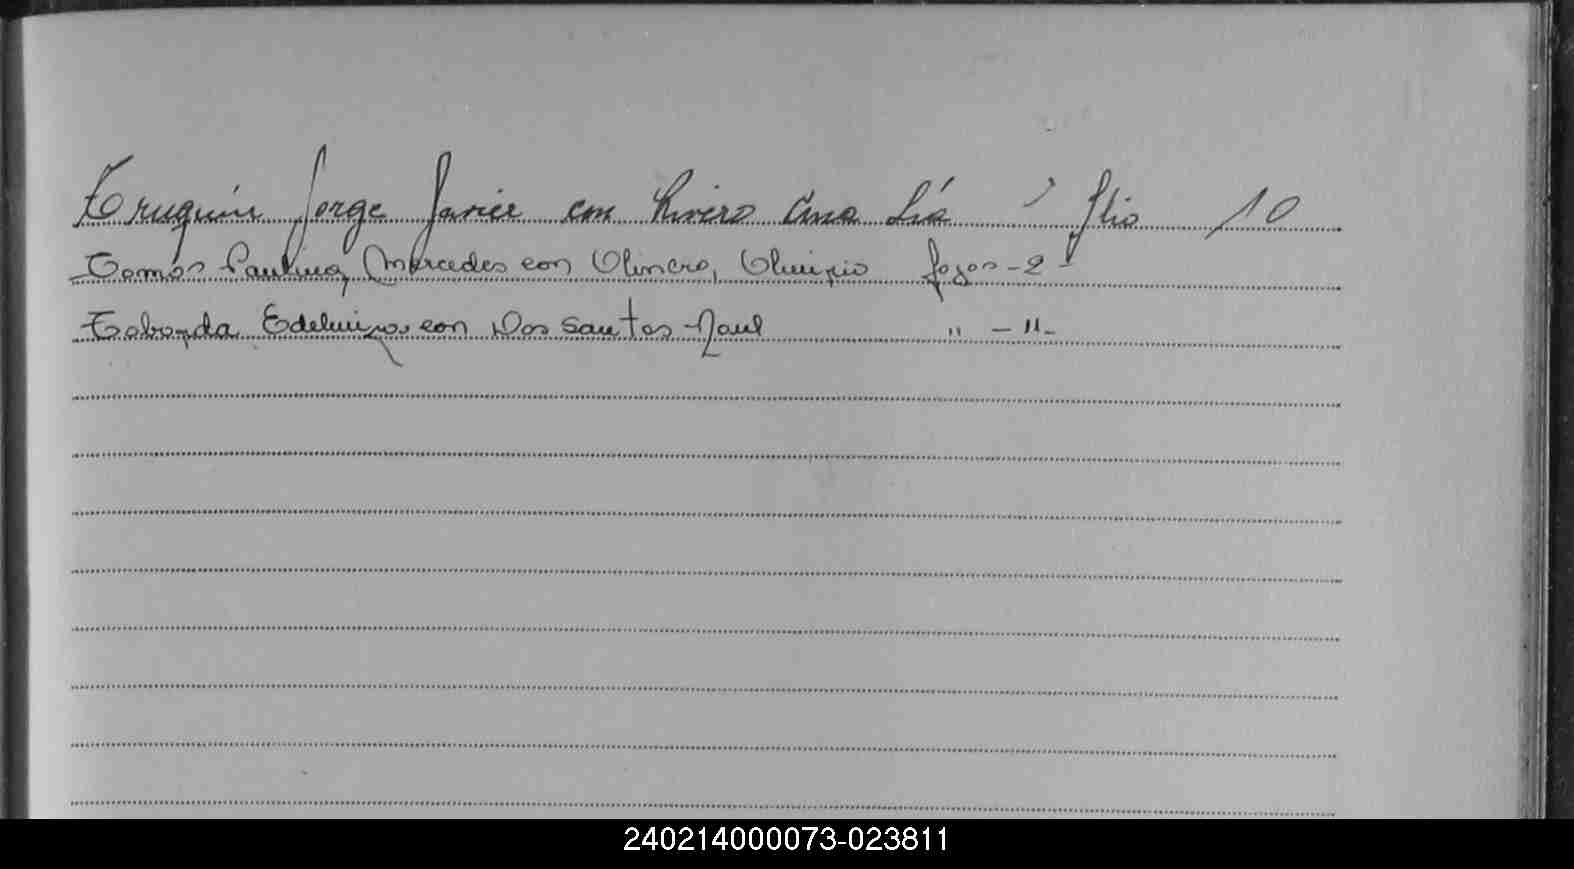 Truquin Jorge Javier con Rivero Ana Lía Flio 10
Tomás Paulina, Mercedes con Olivera, Olimpio fojas - 2 -
Taborda Edelmira con Dos Santos Raul " - " -
240214000073-023811